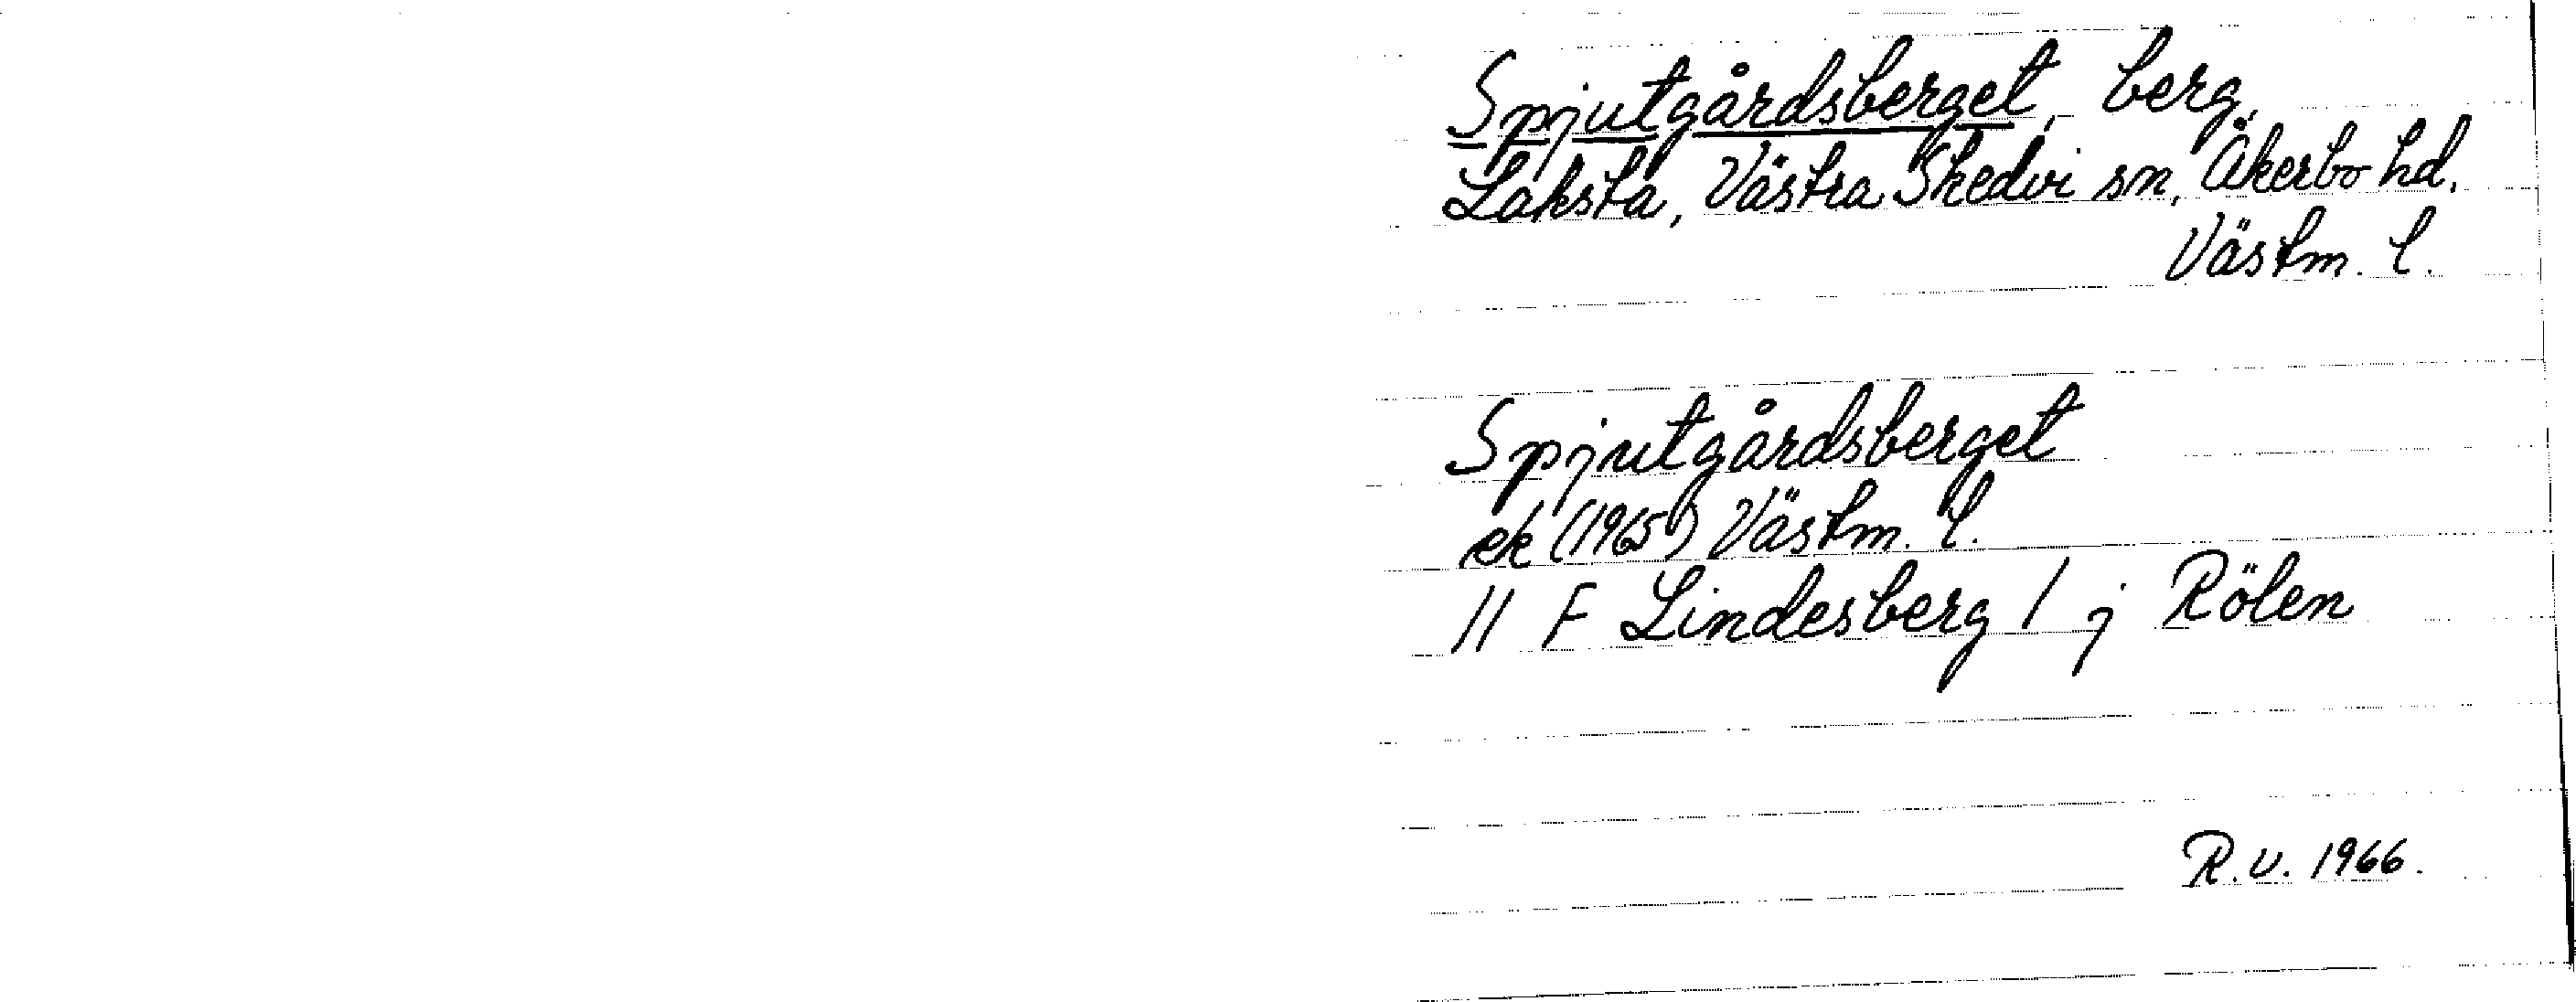 Spjutgårdsberget, berg,
Laksta, Västra Skedvi sn, Åkerbo hd.
Västm. l.
Spjutgårdsberget
ek (1965) Västm. l.
11 F Lindesberg 1 j Rölen
R.V. 1966.